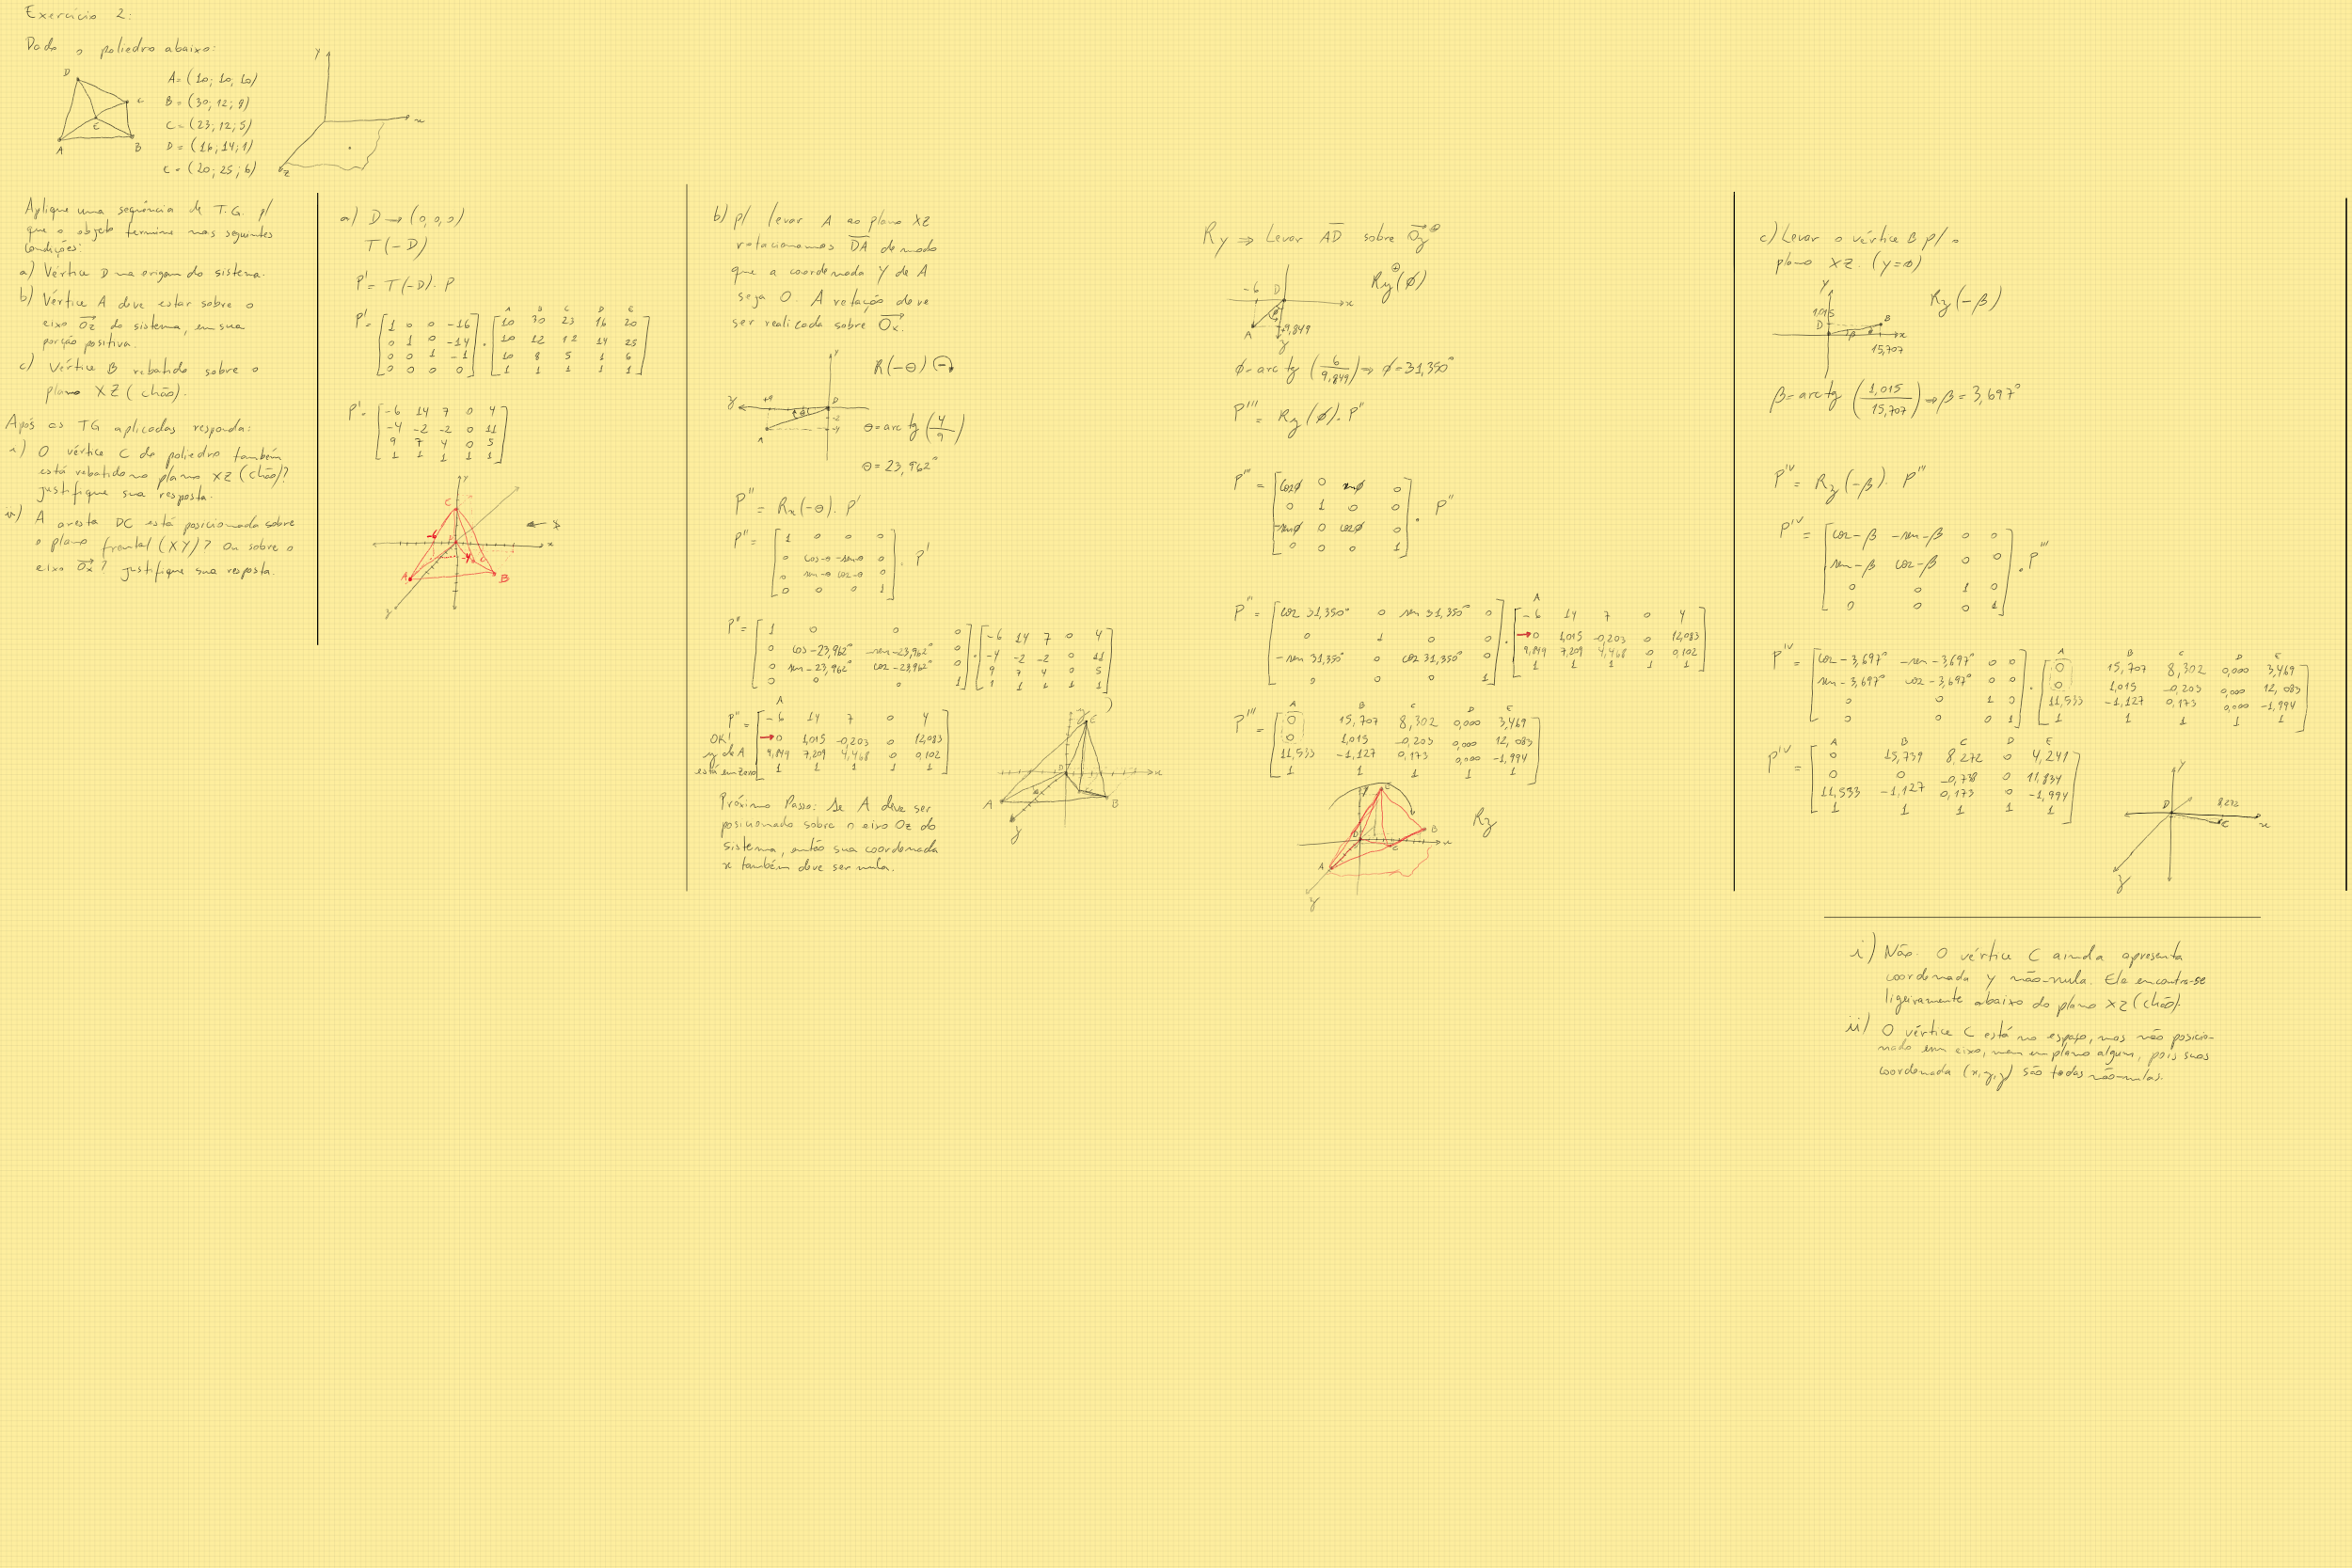 Exercício 2:
Dado o poliedro abaixo:
D
C
E
A
B
A = (10; 10; 10)
B = (30; 12; 8)
C = (23; 12; 5)
D = (16; 14; 1)
E = (20; 25; 6)
y
x
z
Aplique uma sequência de T.G. p/
que o objeto termine nas seguintes
condições:
a) Vértice D na origem do sistema.
b) Vértice A deve estar sobre o
eixo Oz do sistema, em sua
porção positiva.
c) Vértice B rebatido sobre o
plano XZ (chão).
Após as TG aplicadas responda:
i) O vértice C do poliedro também
está rebatido no plano XZ (chão)?
justifique sua resposta.
ii) A aresta DC está posicionada sobre
o plano frontal (XY)? Ou sobre o
eixo Ox? justifique sua resposta.
a) D → (0,0,0)
T(-D)
P' = T(-D). P
A B C D E
P' = [1 0 0 -16] . [10 30 23 16 20]
0 1 0 -14 10 12 12 14 25
0 0 1 -1 10 8 5 1 6
0 0 0 0 1 1 1 1 1
P' = [-6 14 7 0 4]
-4 -2 -2 0 11
9 7 4 0 5
1 1 1 1 1
b) p/ levar A ao plano XZ
rotacionamos DA de modo
que a coordenada Y de A
seja 0. A rotação deve
ser realizada sobre Ox.
R(-θ)
+9
-2
-4
θ = arc tg (4/9)
θ = 23,962°
P'' = Rx(-θ). P'
P'' = [1 0 0 0] . P'
0 cos-θ -sen-θ 0
0 sen-θ cos-θ 0
0 0 0 1
P'' = [1 0 0 0] . [-6 14 7 0 4]
0 cos-23,962° -sen-23,962° 0 -4 -2 -2 0 11
0 sen-23,962° cos-23,962° 0 9 7 4 0 5
0 0 0 1 1 1 1 1 1
A
P'' = [-6 14 7 0 4]
OK! → 0 1,015 -0,203 0 12,083
y de A 9,849 7,209 4,468 0 0,102
está em zero 1 1 1 1 1
Próximo Passo: Se A deve ser
posicionado sobre o eixo Oz do
sistema, então sua coordenada
x também deve ser nula.
Ry ⇒ Levar AD sobre Oz⊕
-6 D
x
A
9,849
z
Ry(ϕ)
ϕ = arc tg (6/9,849) ⇒ ϕ = 31,350°
P''' = Ry(ϕ). P''
P''' = [cosϕ 0 senϕ 0] . P''
0 1 0 0
-senϕ 0 cosϕ 0
0 0 0 1
A
P''' = [cos 31,350° 0 sen 31,350° 0] . [-6 14 7 0 4]
0 1 0 0 → 0 1,015 -0,203 0 12,083
-sen 31,350° 0 cos 31,350° 0 9,849 7,209 4,468 0 0,102
0 0 0 1 1 1 1 1 1
A B C D E
P''' = [0 15,707 8,302 0,000 3,469]
0 1,015 -0,203 0,000 12,083
11,533 -1,127 0,173 0,000 -1,994
1 1 1 1 1
Rz
c) Levar o vértice B p/ o
plano XZ. (y=0)
Y
1,015
D
B
β
x
15,707
Rz(-β)
β = arc tg (1,015/15,707) ⇒ β = 3,697°
P'V = Rz(-β). P'''
P'V = [cos-β -sen-β 0 0] . P'''
sen-β cos-β 0 0
0 0 1 0
0 0 0 1
A B C D E
P'V = [cos-3,697° -sen-3,697° 0 0] . [0 15,707 8,302 0,000 3,469]
sen-3,697° cos-3,697° 0 0 0 1,015 -0,203 0,000 12,083
0 0 1 0 11,533 -1,127 0,173 0,000 -1,994
0 0 0 1 1 1 1 1 1
A B C D E
P'V = [0 15,739 8,272 0 4,241]
0 0 -0,738 0 11,834
11,533 -1,127 0,173 0 -1,994
1 1 1 1 1
Y
D
8,272
C
x
z
i) Não. O vértice C ainda apresenta
coordenada y não-nula. Ele encontra-se
ligeiramente abaixo do plano XZ (chão).
ii) O vértice C está no espaço, mas não posicio-
nado em eixo, nem em plano algum, pois suas
coordenada (x,y,z) são todas não-nulas.